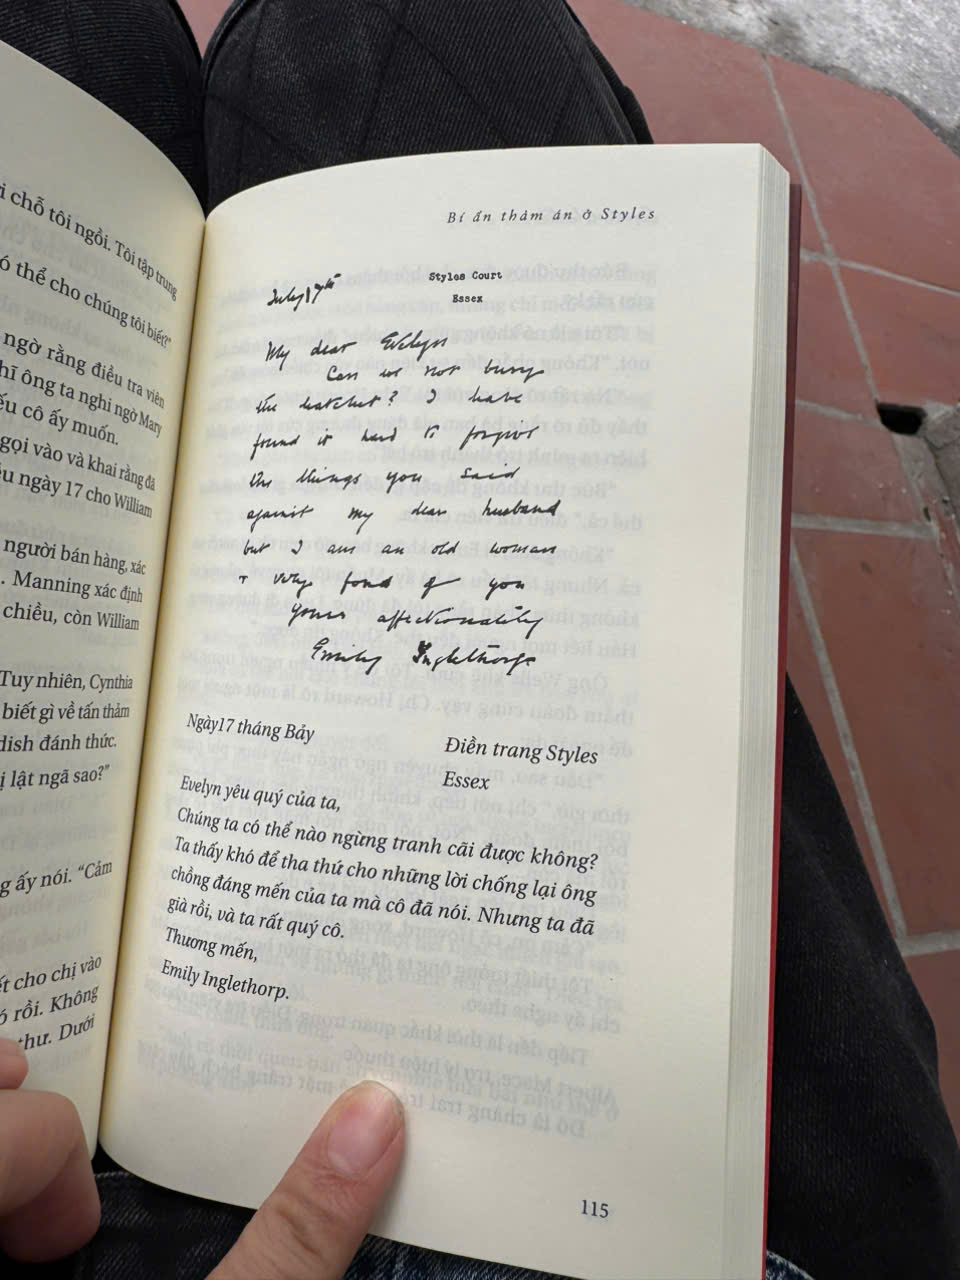 i chỗ tôi ngồi. Tôi tập trung
ó thể cho chúng tôi biết?"
ngờ rằng điều tra viên
hĩ ông ta nghi ngờ Mary
ếu cô ấy muốn.
gọi vào và khai rằng đã
ều ngày 17 cho William
người bán hàng, xác
. Manning xác định
chiều, còn William
Tuy nhiên, Cynthia
biết gì về tấn thảm
dish đánh thức.
ị lật ngã sao?"
g ấy nói. "Cảm
ết cho chị vào
ó rồi. Không
thư. Dưới
Bí ẩn thảm án ở Styles
July 17th
Styles Court
Essex
My dear Evelyn
Can we not bury
the hatchet? I have
found it hard to forgive
the things you said
against my dear husband
but I am an old woman
+ very fond of you
Yours affectionately
Emily Inglethorp
Ngày17 tháng Bảy
Điền trang Styles
Essex
Evelyn yêu quý của ta,
Chúng ta có thể nào ngừng tranh cãi được không?
Ta thấy khó để tha thứ cho những lời chống lại ông
chồng đáng mến của ta mà cô đã nói. Nhưng ta đã
già rồi, và ta rất quý cô.
Thương mến,
Emily Inglethorp.
115